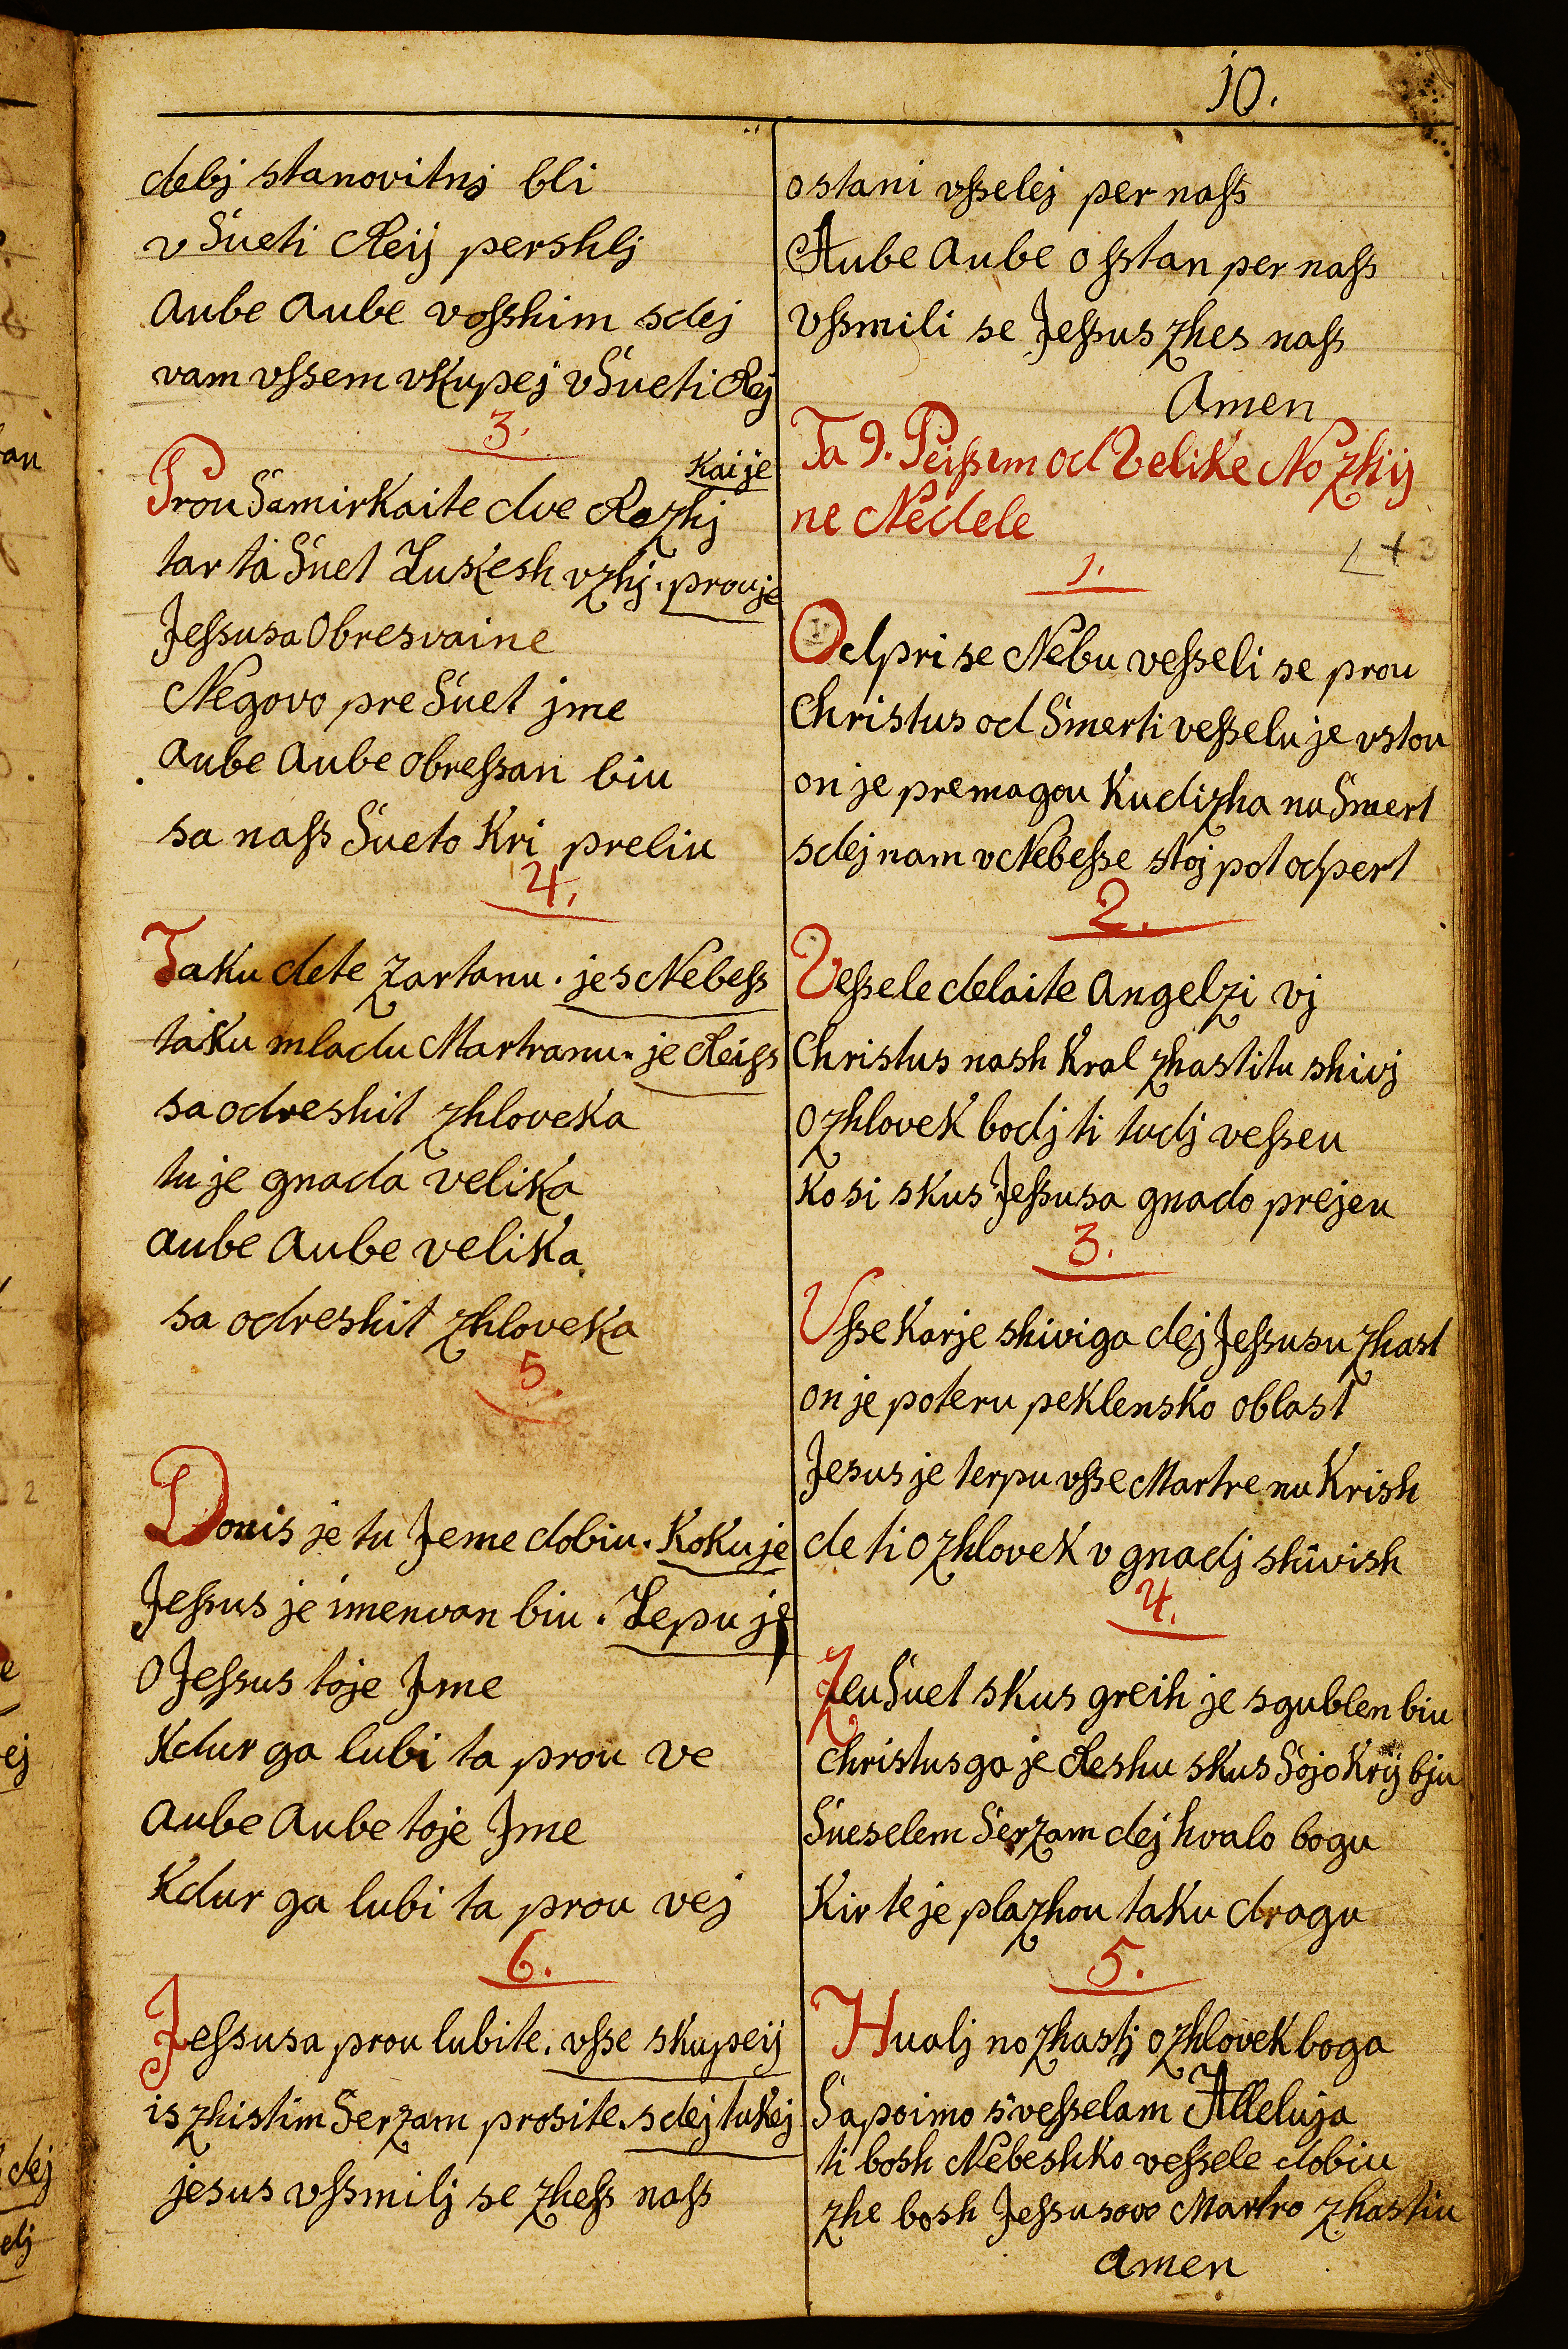 10.
debj stanovitnj bli
v Sueti Reij pershlj
aube aube vosshim sdej
vam vssem vkupej v Sueti Rej
3.
kaije
Prou Samirkaite dve Rezhj
tar ta Suet Luskesh vzhj. prouje
Jessusa Obresvaine
Negovo pre Suet jme
aube aube obressan biu
sa nass Sueto Kri preliu
4.
Taku dete zartanu. je s Nebess
taku mladu Martranu. je Reiss
sa odreshit zhloveka
tu je gnada velika
aube aube velika
sa odreshit zhloveka
5.
Donis je tu Jeme dobiu. Kokuje
Jessus je imenvan biu. Lepu je
O Jessus toje Jme
Kdur ga lubi ta prou ve
aube aube toje Jme
Kdur ga lubi ta prou vej
6.
Jessusa prou lubite. vsse skupeij
is zhistim Serzam prosite. sdej tukej
jesus vssmilj se zhess nass
ostani vsselej per nass
Aube aube osstan per nass
Vssmili se Jessus zhes nass
Amen
Ta 9. Peissm od Velike No zhij
ne Nedele
1.
Odpri se Nebu vesseli se prou
Christus od Smerti vesselu je vstou
on je premagou Kudizha nu Smert
sdej nam v Nebesse stoj pot odpert
2.
Vessele delaite Angelzi vj
Christus nash Kral zhastitu shivj
O zhlovek bodj ti tudj vesseu
Ko si skus Jessusa gnado prejeu
3.
Vsse Karje shiviga dej Jessusu zhast
on je poteru peklensko oblast
Jesus je terpu vsse Martre nu Krish
de ti O zhlovek v gnadj shivish
4.
Zeu Suet skus greih je sgublen biu
Christus ga je Reshu skus Sojo Krij bju
Sueselem Serzam dej hvalo bogu
Kir te je plazhou taku dragu
5.
Hualj no zhastj O zhlovek boga
Sapoimo s'vesselam Alleluja
ti bosh Nebeshko vessele dobiu
zhe bosh Jessusovo Martro zhastiu
amen